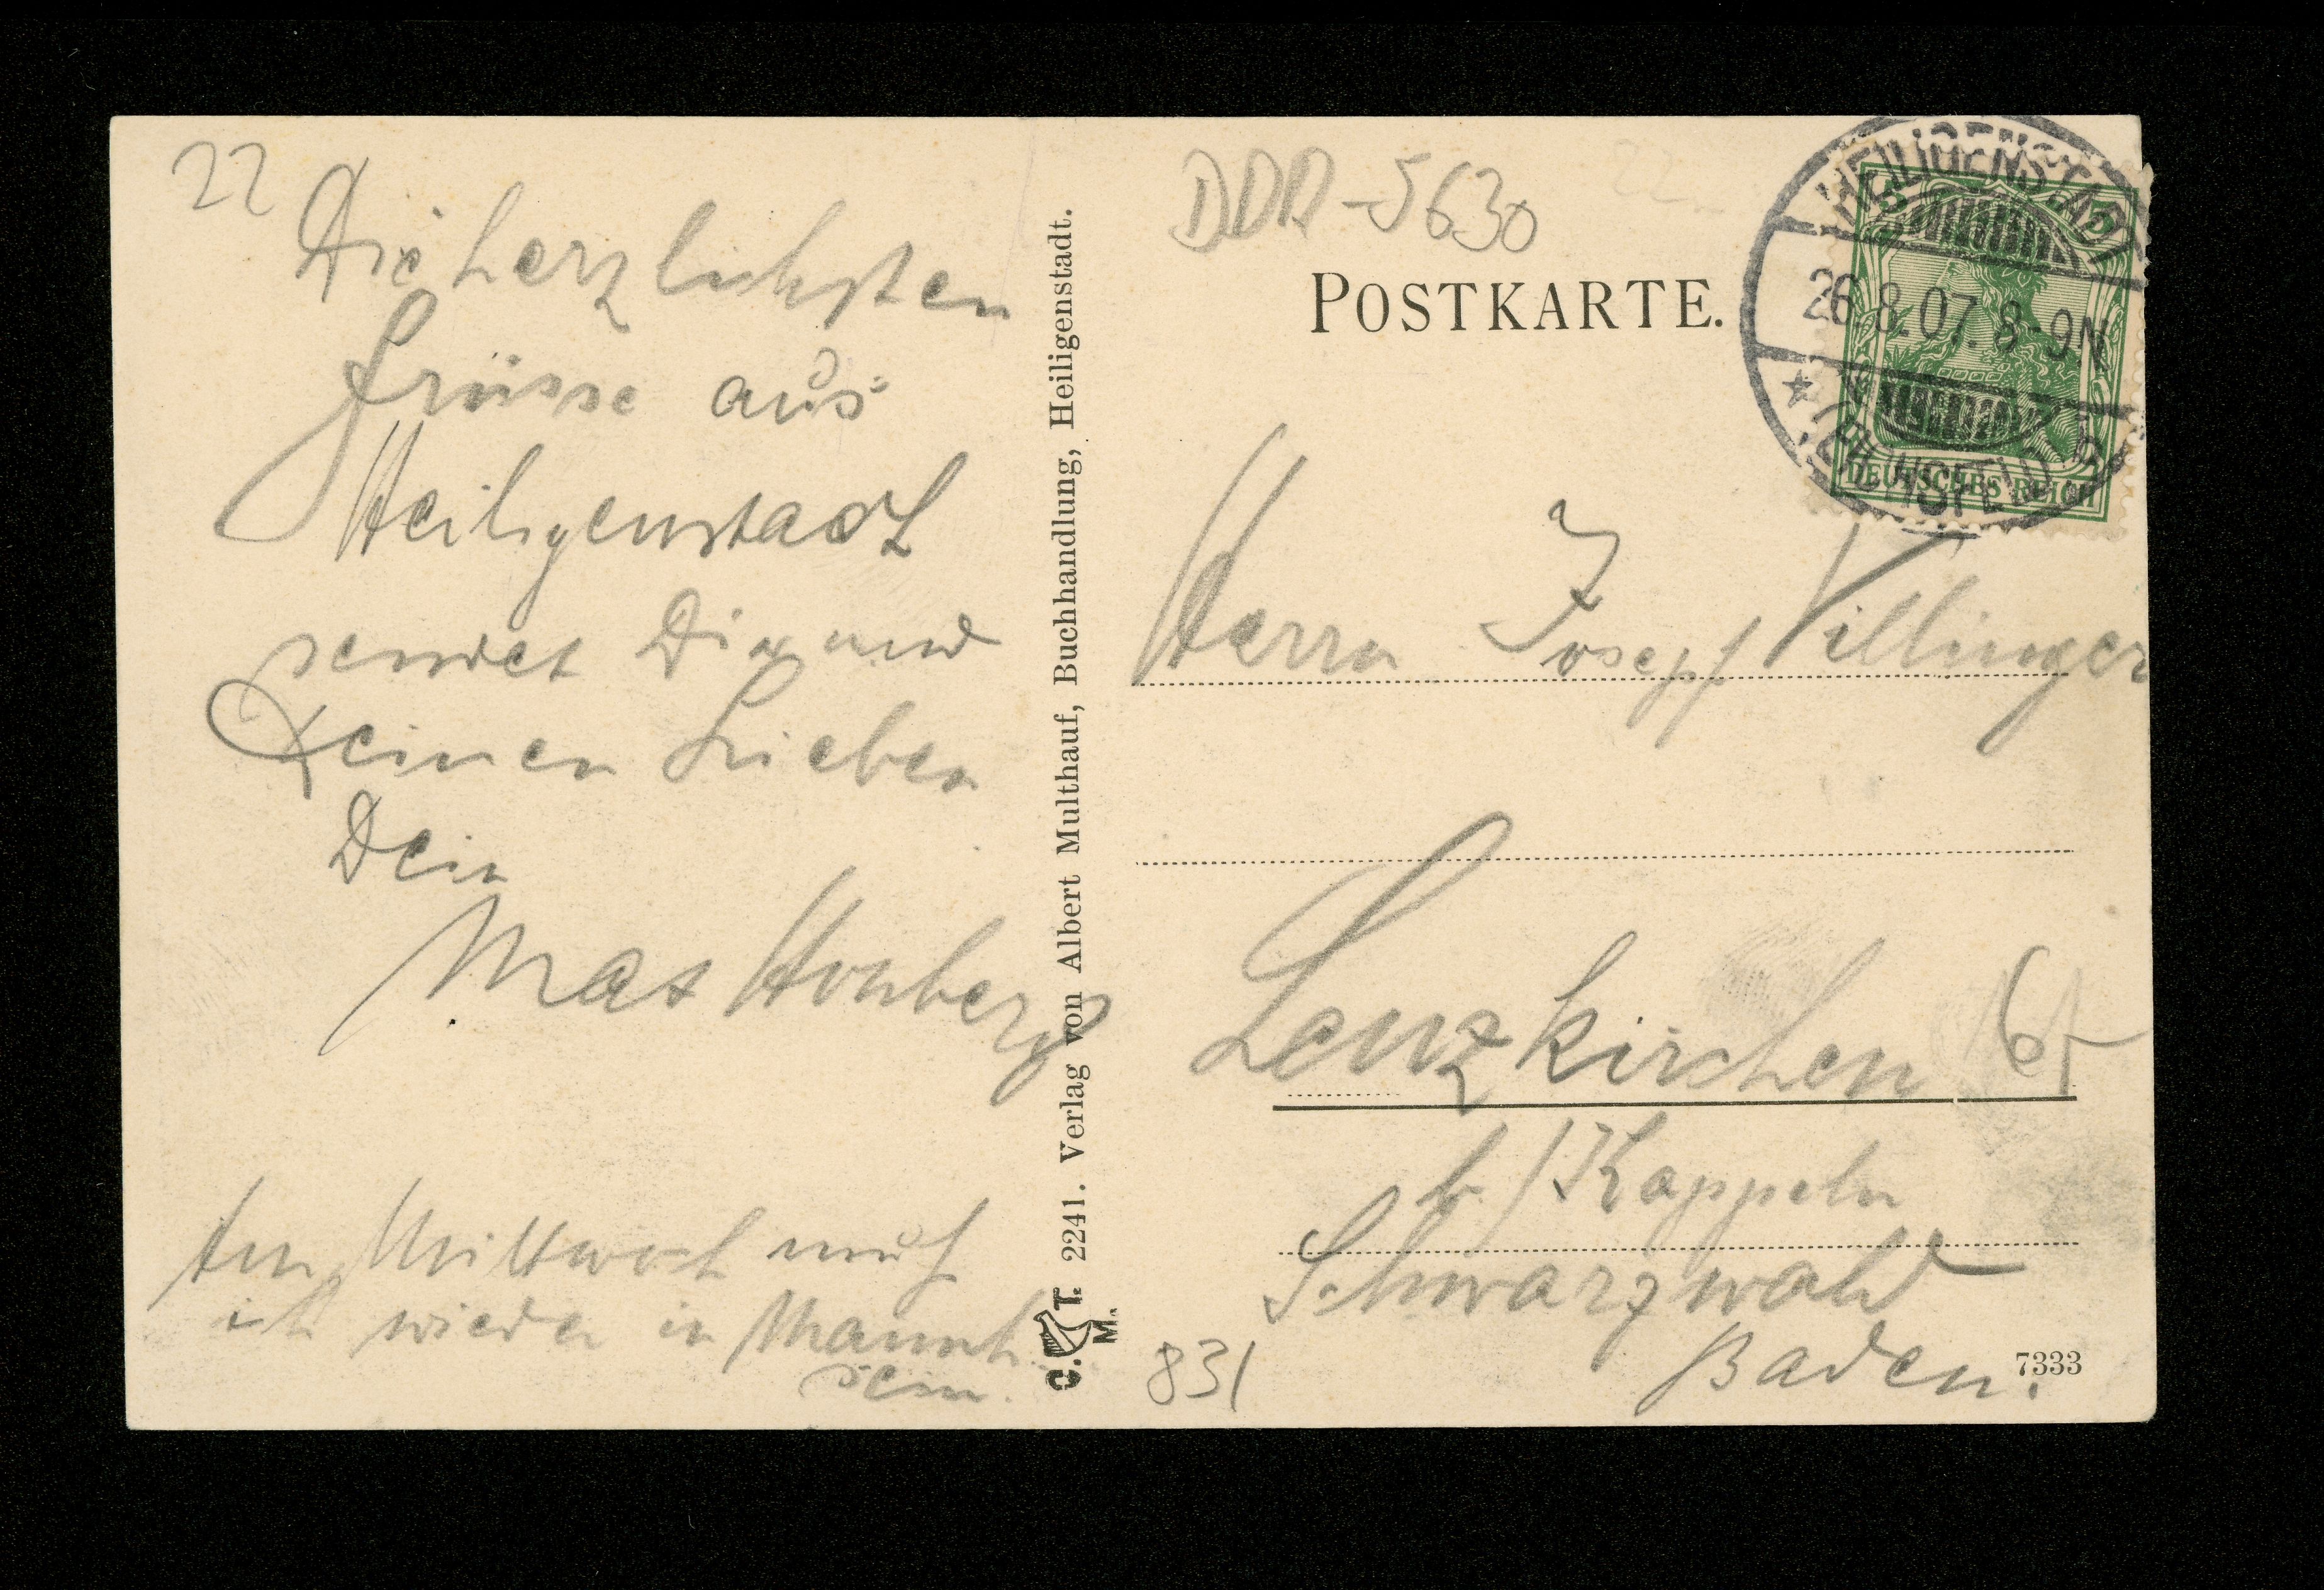 22
Die herzlichsten
Grüsse aus
Heiligenstadt
sendet Dir und
Deinen Lieben
Dein
Max Homberg
Am Mittwoch muß
ich wieder in Mannh.
sein.
C. T. M. 2241. Verlag von Albert Multhauf, Buchhandlung, Heiligenstadt.
DDR-5630
POSTKARTE.
HEILIGENSTADT
26.8.07. 8-9N
* (EICHSFELD)
DEUTSCHES REICH
Herrn Josepf Villinger
Lenzkirchen
b./Kappeln
Schwarzwald
Baden.
831
7333